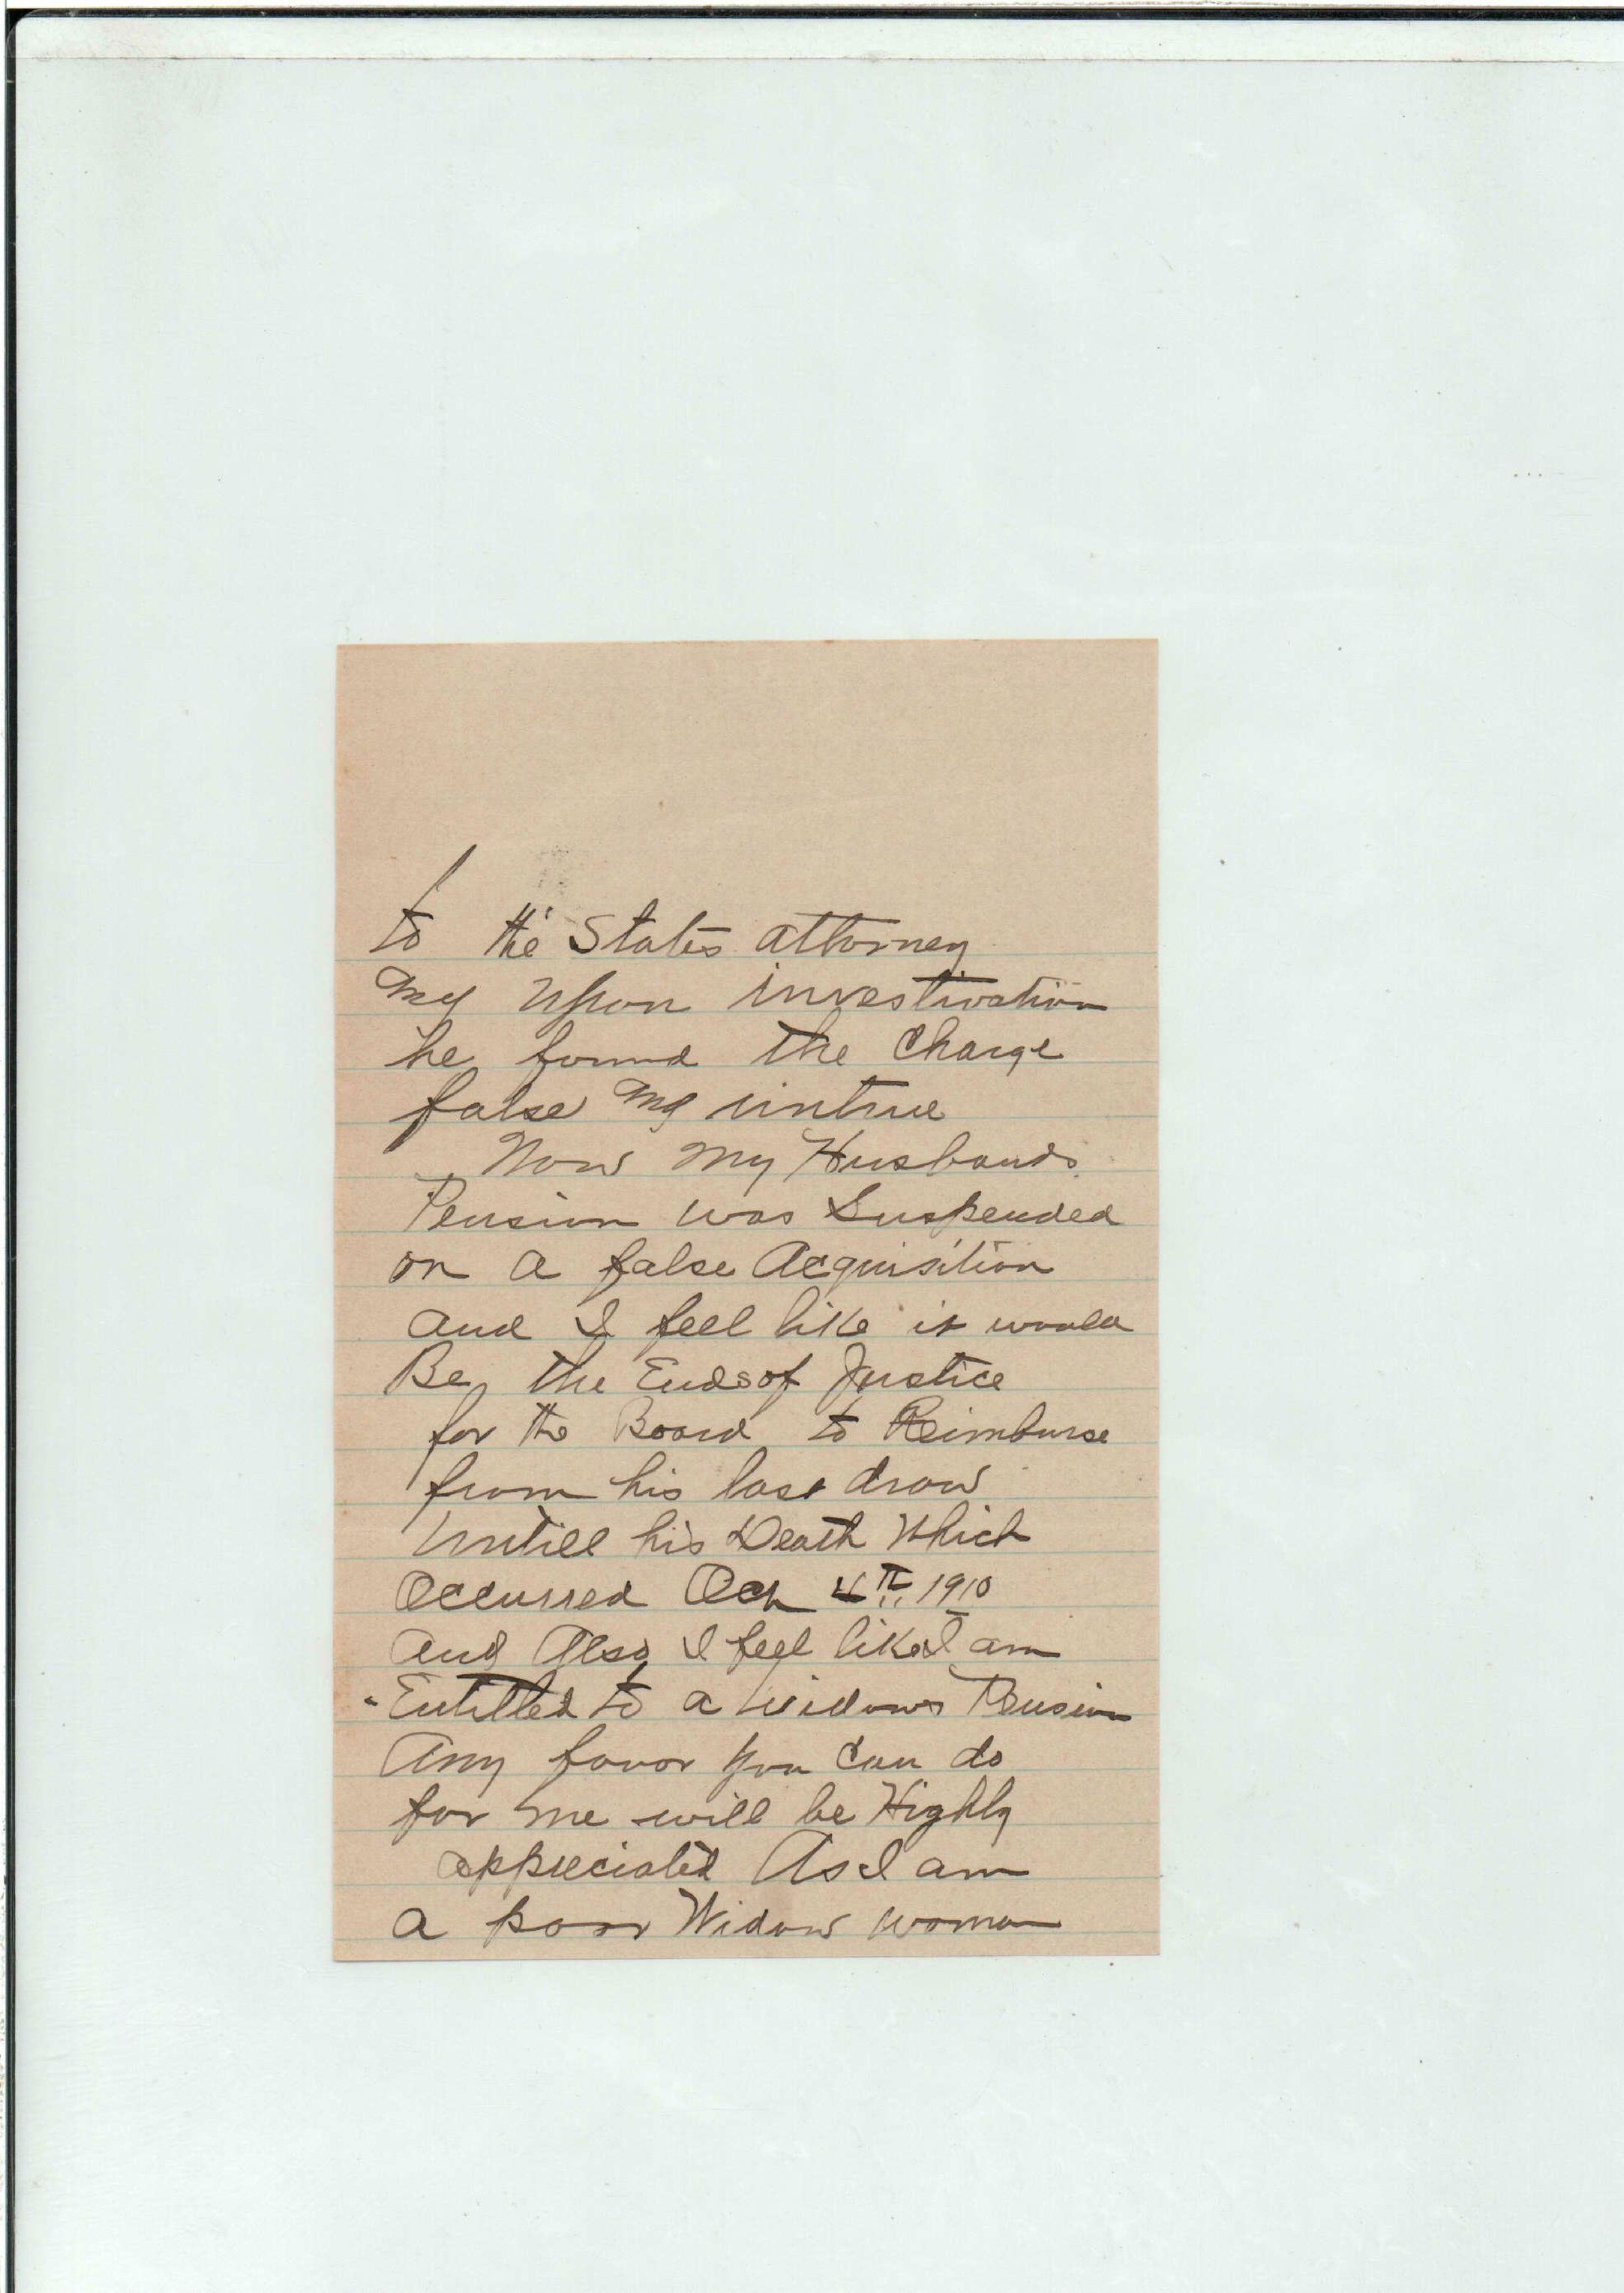 to the States attorney
and upon investivation
he found the Charge
false and untrue
Now My Husbands
Pension was Suspended
on a false Acquisition
and I feel like it would
Be the Ends of Justice
for the Board to Reimburse
from his last draw
Untill his Death Which
Occurred Oct 4th 1910
and Also I feel like I am
Entitled to a Widows Pension
Any favor you Can do
for me will be Highly
appreciated As I am
a poor Widow woman